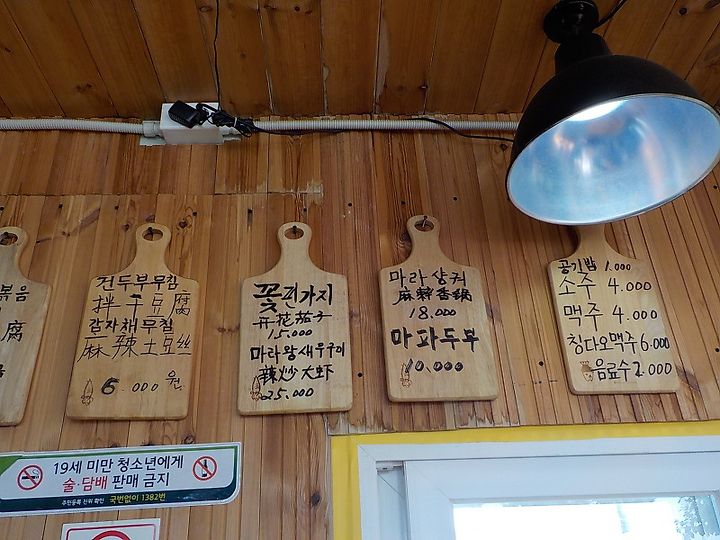 볶음
腐
건두부무침
拌干豆腐
감자채무침
麻辣土豆丝
6.000원
꽃핀가지
开花茄子
15.000
마라왕새우구이
辣炒大虾
25.000
마라샹궈
麻辣香锅
18.000
마파두부
10.000
공기밥 1.000
소주 4.000
맥주 4.000
칭다오맥주 6.000
음료수 2.000
19세 미만 청소년에게
술·담배 판매 금지
주민등록 진위 확인 국번없이 1382번